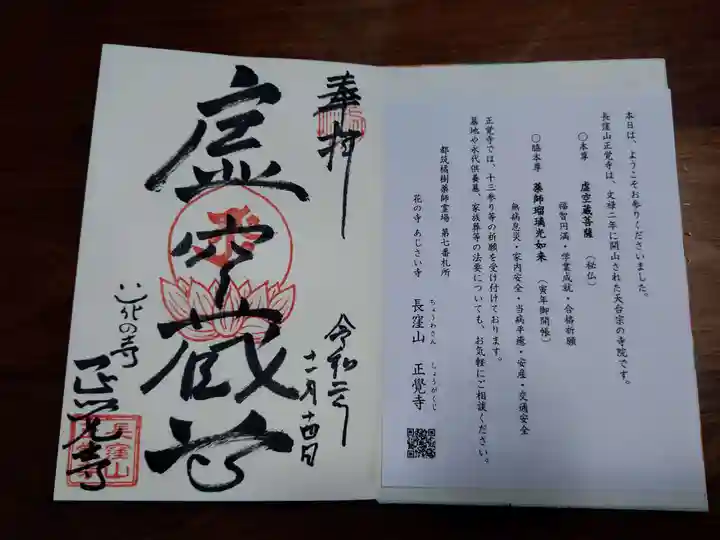 本日は、ようこそお参りくださいました。
長窪山正覚寺は、文禄二年に開山された天台宗の寺院です。
○本尊 虚空蔵菩薩（秘仏）
福智円満・学業成就・合格祈願
○脇本尊 薬師瑠璃光如来（寅年御開帳）
無病息災・家内安全・当病平癒・安産・交通安全
正覚寺では、十三参り等の祈願を受け付けております。
墓地や永代供養墓、家族葬等の法要についても、お気軽にご相談ください。
都筑橘樹薬師霊場 第七番札所
花の寺 あじさい寺 長窪山 正覺寺
ちょうわさん しょうがくじ
奉拝
令和二年
十一月十四日
虚空蔵尊
花の寺
正覚寺
長窪山